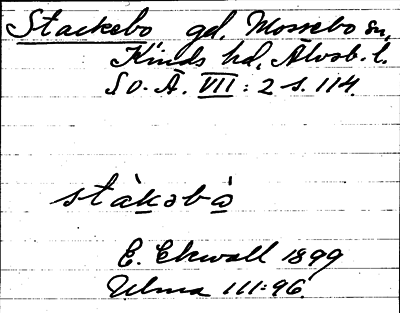 Stackebo gd. Mossebo sn,
Kinds hd, Älvsb. l.
S O. Ä. VII: 2 s. 114.
stàkəbò
E. Ekwall 1899
Ulma 111:96.